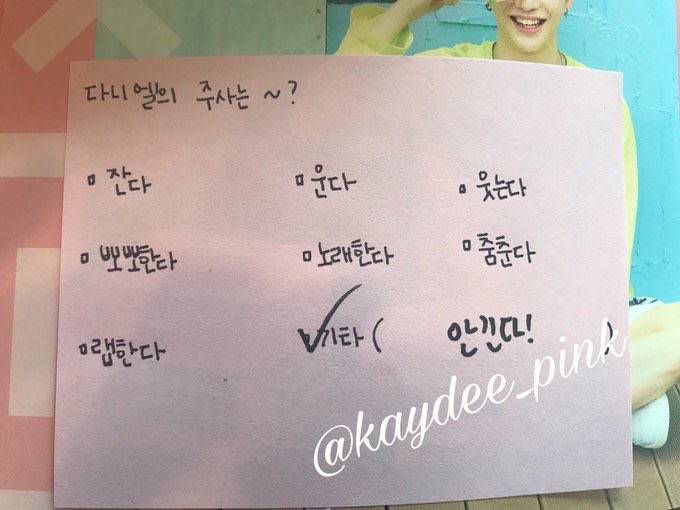 다니엘의 주사는 ~ ?
▫ 잔다 ▫ 운다 ▫ 웃는다
▫ 뽀뽀한다 ▫ 노래한다 ▫ 춤춘다
▫ 랩한다 ✓기타 ( 안긴다! )
@kaydee_pink